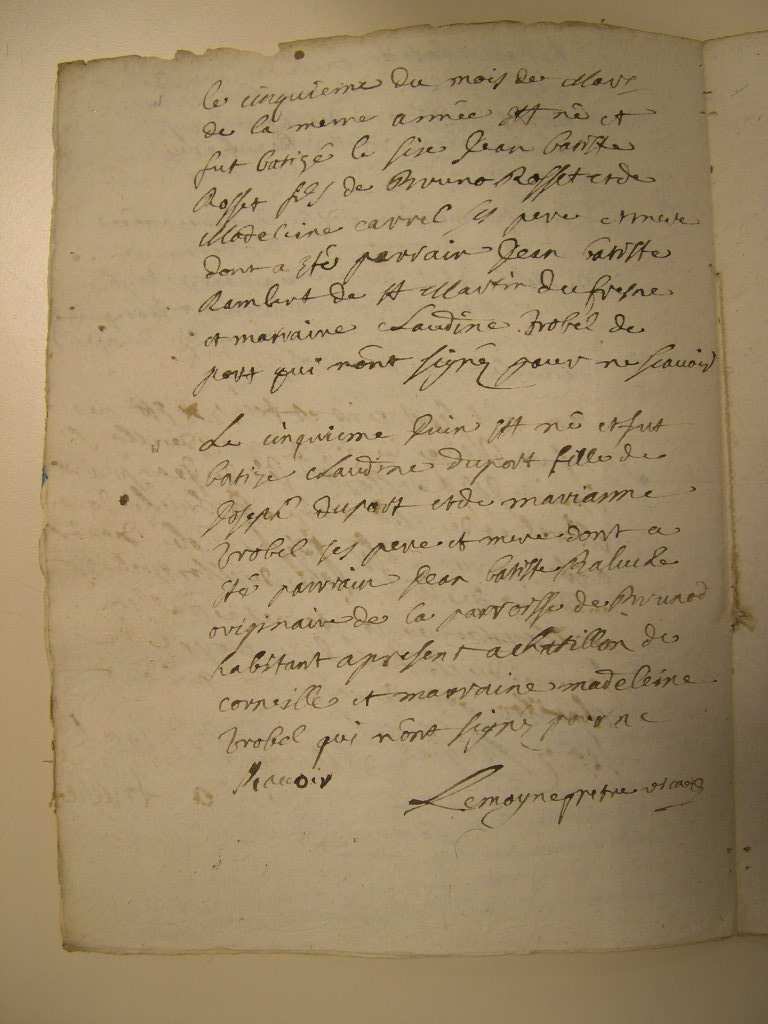 le cinquieme du mois de Mars
de la meme année est né et
fut batizé le sixe Jean batiste
Rosset fils de Bruno Rosset et de
Madeleine carrel ses pere et mere
dont a esté parrain Jean batiste
Rambert de st Martin du fresne
et marraine Claudine Brobel de
port qui n'ont signéz pour ne scavoir
Le cinquieme Juin est né et fut
batize Claudine duport fille de
Joseph duport et de marianne
Brobel ses pere et mere dont a
esté parrain Jean batiste
originaire de la parroisse de Brunod
habitant apresent a chatillon de
corneille et marraine madeleine
Brobel qui n'ont signez pour ne
scavoir
Lemoyne pretre vicaire